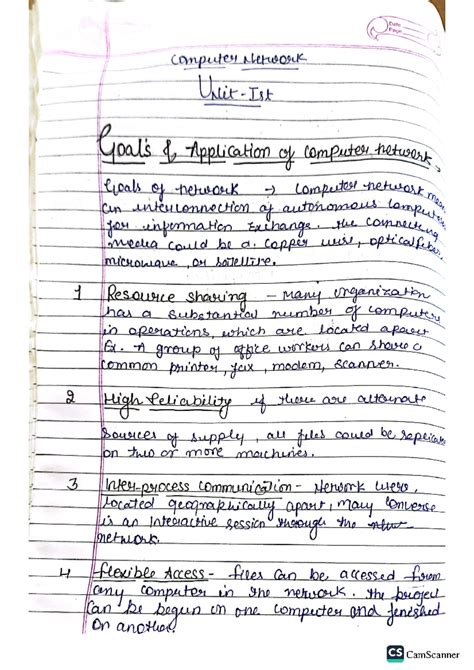 Date
Page
Computer Network
Unit-Ist
Goals & Application of Computer network
Goals of network → Computer network means
an interconnection of autonomous computers
for information Exchange. The connecting
media could be a copper wire, optical fiber,
microwave, or satellite.
1 Resource Sharing - Many organization
has a substantial number of computers
in operations, which are located apart
Ex. A group of office workers can share a
common printer, fax, modem, scanner.
2 High Reliability if there are alternate
sources of supply, all files could be replicate
on two or more machines.
3 Inter-process communication - Network users,
located geographically apart, may converse
is an Interactive session through the
network.
4 Flexible Access - files can be accessed from
any computer in the network. the project
can be begun on one computer and finished
on another.
CS CamScanner